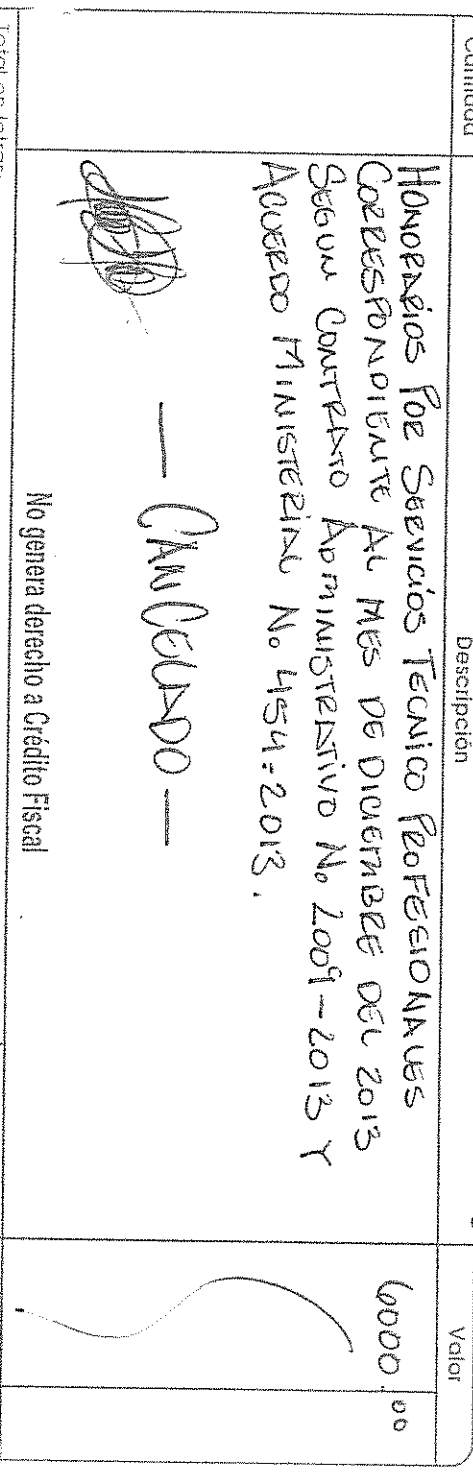 Cantidad Descripción Valor
HONORARIOS POR SERVICIOS TECNICO PROFESIONALES 6000.00
CORRESPONDIENTE AL MES DE DICIEMBRE DEL 2013
SEGUN CONTRATO ADMINISTRATIVO No. 2009-2013 Y
ACUERDO MINISTERIAL No. 454-2013.
— CANCELADO —
No genera derecho a Crédito Fiscal
Total en letras